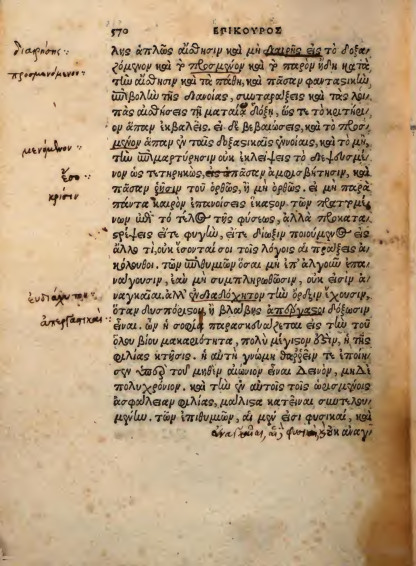 570 ΕΠΙΚΟΥΡΟΣ
λης ἁπλῶς αἴσθησιν καὶ μὴ διαιρῆς εἰς τὸ δοξα
ζόμενον καὶ τ προσμενον καὶ τ παρὸν ἤδη κατὰ
τὴν αἴσθησιν καὶ τὰ πάθη, καὶ πᾶσαν φανταστικὴν
ἐπιβολὴν τῆς διανοίας, συνταράξεις καὶ τὰς λοι
πὰς αἰσθήσεις τῇ ματαίᾳ δόξῃ, ὥς τε τὸ κριτήρι
ον ἅπαν ἐκβαλεῖς. εἰ δὲ βεβαιώσεις, καὶ τὸ προσ
μενον ἅπαν ἐν ταῖς δοξαστικαῖς ἐννοίαις, καὶ τὸ μὴ,
τὴν ἐπιμαρτύρησιν οὐκ ἐκλείψεις τὸ διεψευσμέ
νον ὡς τετηρηκὼς, εἰς ἅπασαν ἀμφισβήτησιν, καὶ
πᾶσαν κρίσιν τοῦ ὀρθῶς, ἢ μὴ ὀρθῶς. εἰ μὴ παρὰ
πάντα καιρὸν ἐπανοίσεις ἕκαστον τῶν πραττομέ
νων ἐπὶ τὸ τέλος τῆς φύσεως, ἀλλὰ προκατα
στρέψεις εἴτε φυγὴν, εἴτε δίωξιν ποιούμενος εἰς
ἄλλο τι, οὐκ ἔσονταί σοι τοῖς λόγοις αἱ πράξεις ἀ
κόλουθοι. τῶν ἐπιθυμιῶν ὅσαι μὴ ἐπ' ἀλγοῦν ἐπα
νάγουσιν, ἐὰν μὴ συμπληρωθῶσιν, οὐκ εἰσὶν ἀ
ναγκαῖαι. ἀλλ' ἐνδιάδόχητον τὴν ὄρεξιν ἔχουσιν,
ὅταν δυσπόριστοι, ἢ βλάβης ἀπόργασοι δόξωσιν
εἶναι. ὧν ἡ σοφία παρασκευάζεται εἰς τὴν τοῦ
ὅλου βίου μακαριότητα, πολὺ μέγιστον ἐστιν, ἡ τῆς
φιλίας κτῆσις. ἡ αὐτὴ γνώμη θαρρεῖν τε ἐποίη
σεν ὑπὲρ τοῦ μηδὲν αἰώνιον εἶναι δεινὸν, μηδὲ
πολυχρόνιον. καὶ τὴν ἐν αὐτοῖς τοῖς ὡρισμένοις
ἀσφάλειαν φιλίας, μάλιστα κατεῖναι συντελου
μένην. τῶν ἐπιθυμιῶν, αἱ μέν εἰσι φυσικαὶ, καὶ
οὐκ αναγ
διαιρήσης
προσμενόμενον
μενόμενον
κρίσιν